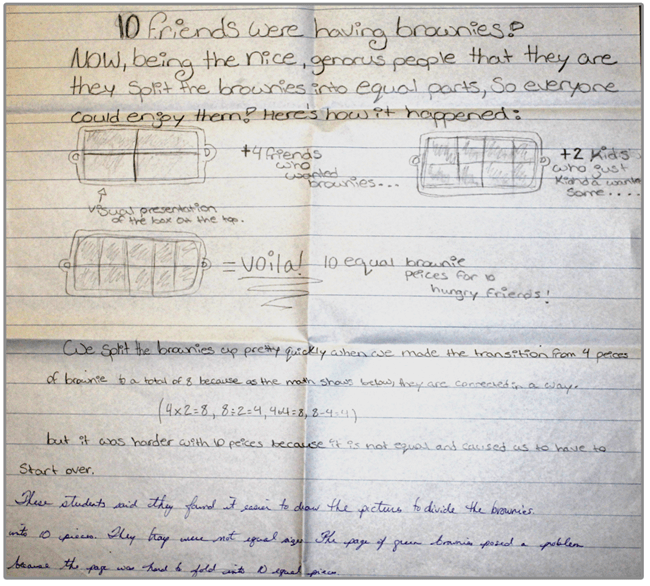 10 friends were having brownies!
Now, being the nice, genorus people that they are
they split the brownies into equal parts, So everyone
could enjoy them! Here's how it happened:
+4 friends
who
wanted
brownies...
visual presentation
of the box on the top.
+2 Kids
who just
Kinda wanted
some....
= voila! 10 equal brownie
peices for 10
hungry friends!
We split the brownies up pretty quickly when we made the transition from 4 peices
of brownie to a total of 8 because as the math shows below, they are connected in a way.
(4x2=8, 8÷2=4, 4+4=8, 8-4=4)
but it was harder with 10 peices because it is not equal and caused us to have to
Start over.
These students said they found it easier to draw the picture to divide the brownies
into 10 pieces. They were not equal size. The page of brownies posed a problem
because the page was hard to fold into 10 equal pieces.